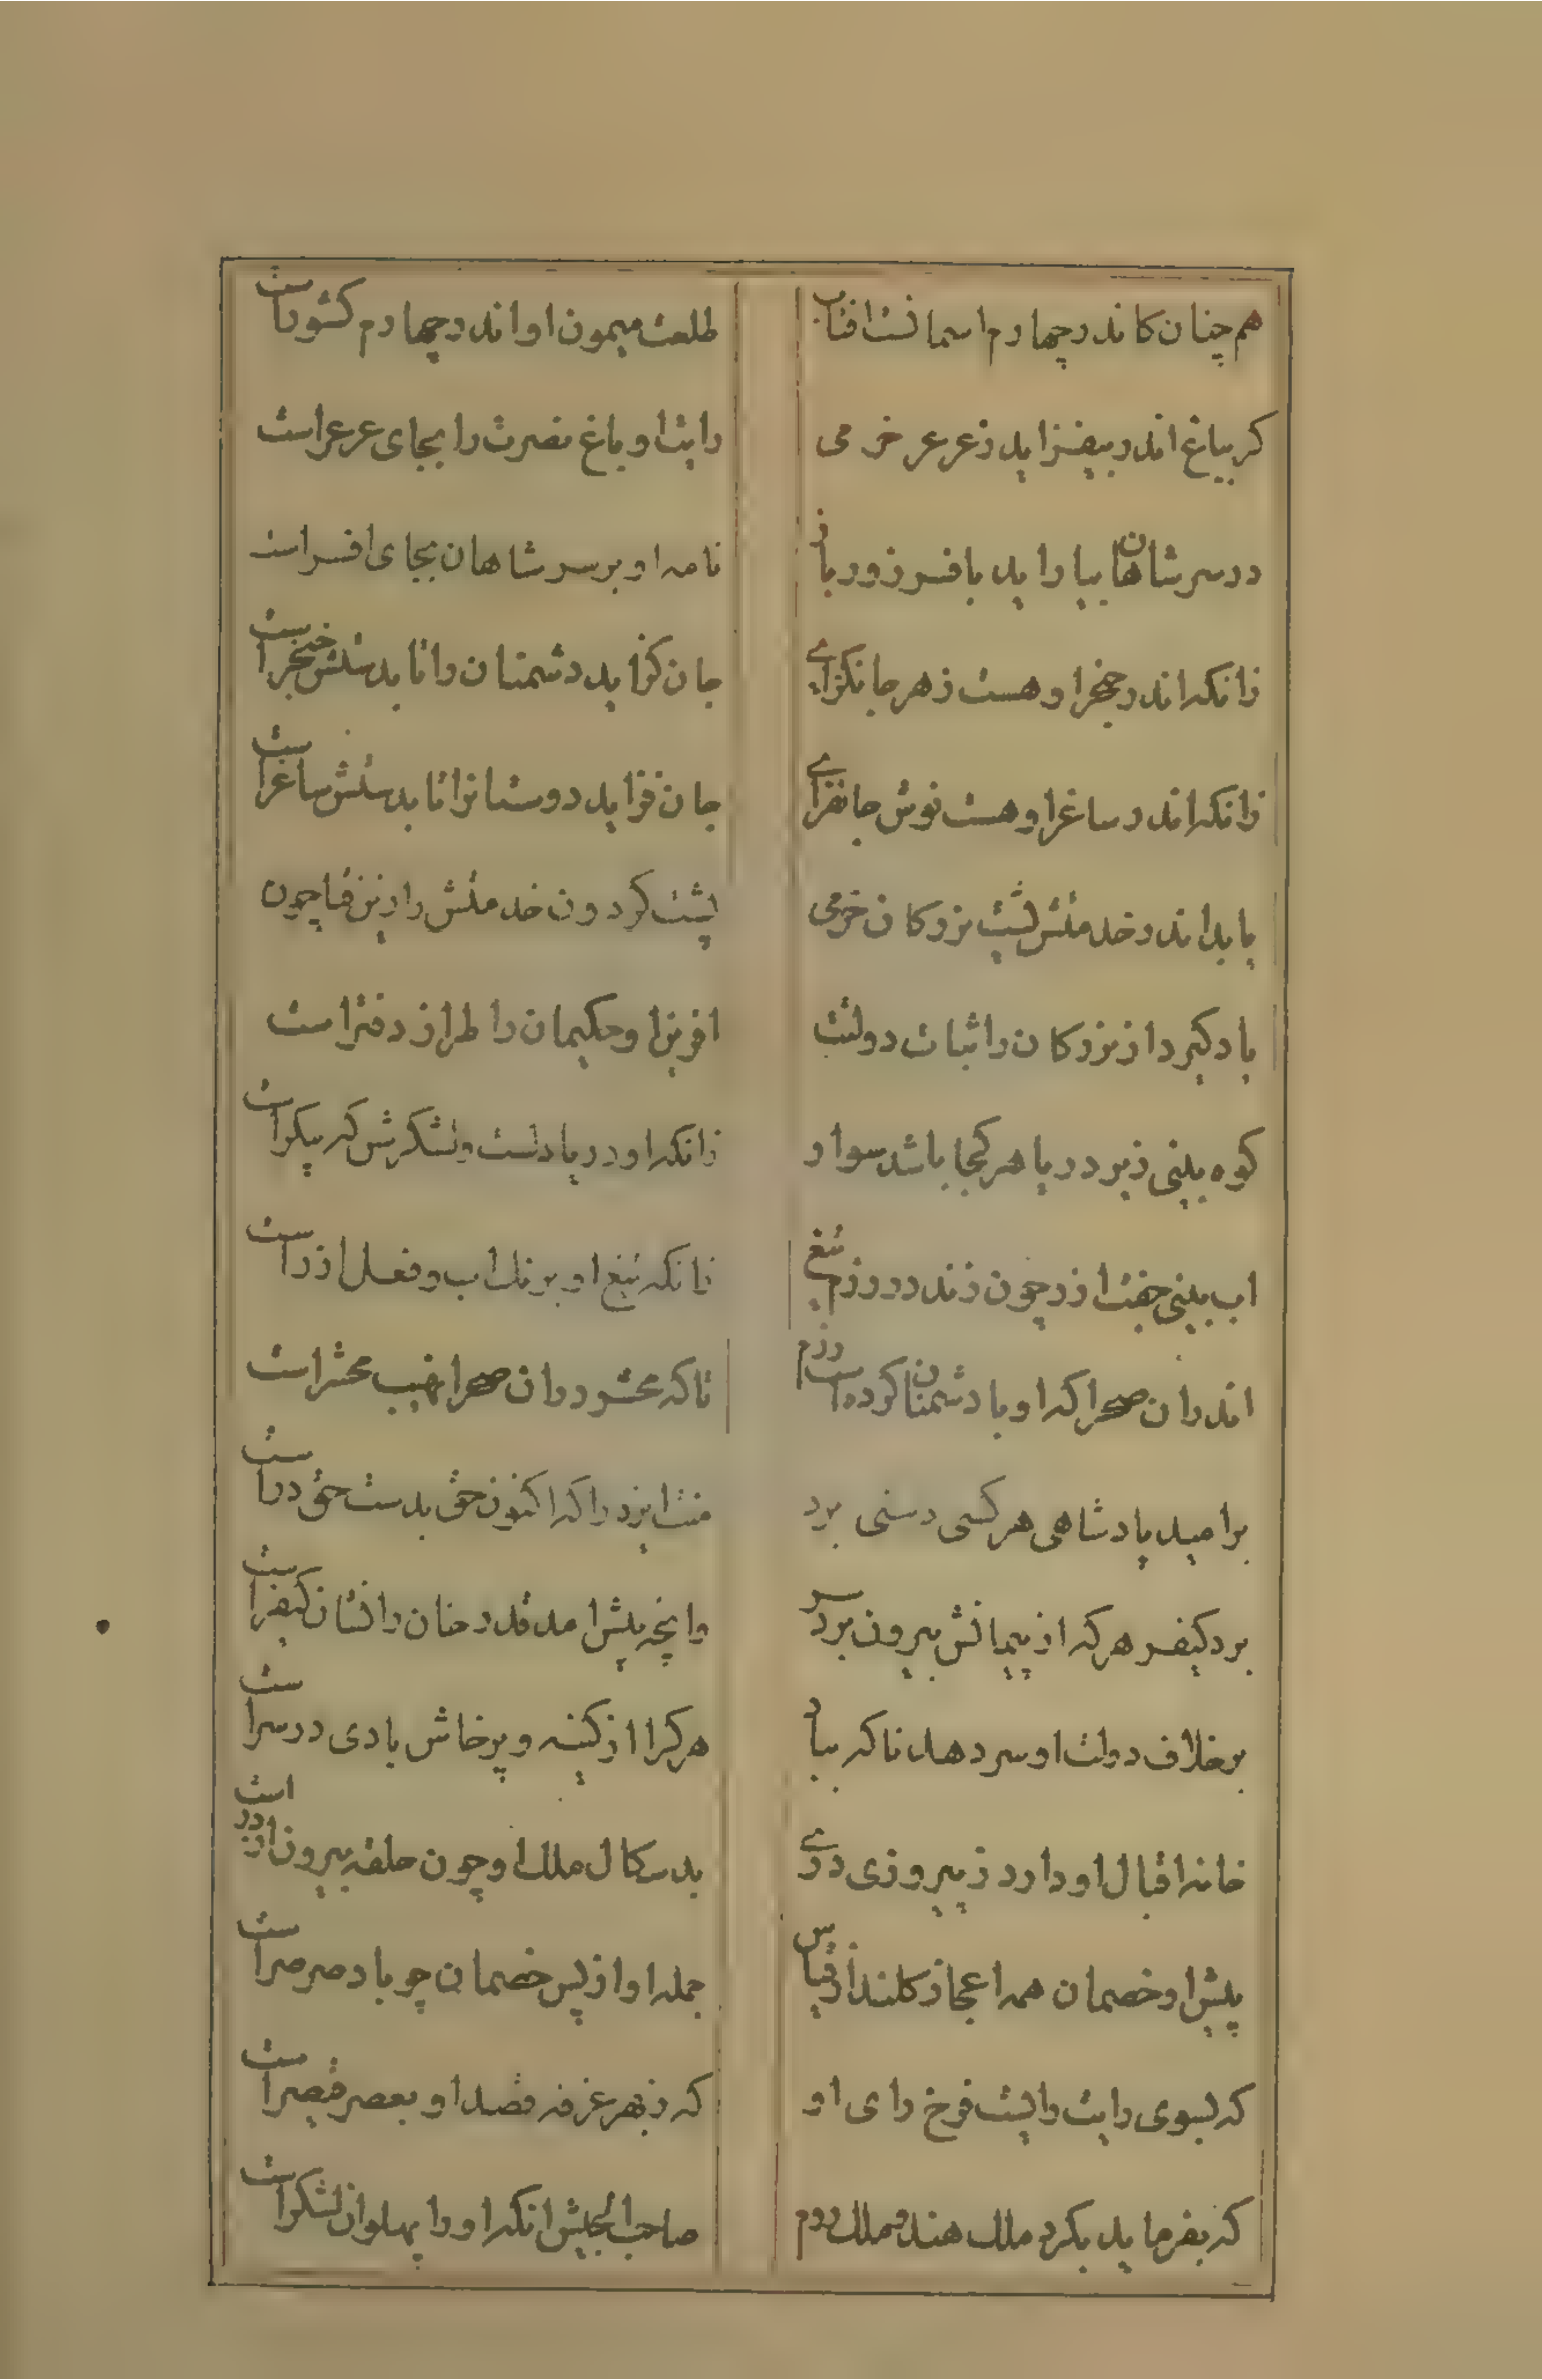 هم چنان کاندر چهارم اسمانست افتاب
طلعت میمون او اندر چهارم کشورست
کر بباغ اندر بیفزاید ز عرعر خرمی
رایت او باغ نصرت را بجای عرعر است
در سر شاهان بیاراید بافسر روزبار
نامه او بر سر شاهان بجای افسر است
زانکه اندر خنجر او هست زهر جانکزای
جان کزاید دشمنان را تا بدستش خنجر است
زانکه اندر ساغر او هست نوش جانفزای
جان فزاید دوستانرا تا بدستش ساغر است
یابد اندر خدمتش پشت بزرکان خرمی
پشت کردون خدمتش را زین قبا چون
یادکیرد از بزرکان را ثبات دولتت
افرین او حکیمان را طراز دفتر است
کوه بینی زیر دریا هر کجا باشد سوار
زانکه او دریا دلست و لشکرش که پیکر است
اب بینی جفت اذر چون زند در رزم تیغ
زانکه تیغ او برنک اب و فعل اذر است
اندران صحرا که او با دشمنان کرده است رزم
تا که محشر در ان صحرا نهیب محشر است
بر امید پادشاهی هر کسی دستی برد
منت ایزد را که اکنون حق بدست حق درست
برد کیفر هر که از پیمانش بیرون برد سر
وانچه پیش امد قدرخان را نشان کیفر است
بر خلاف دولت او سر دهد ناکه بباد
هر کرا از کینه و پرخاش بادی در سر است
خانه اقبال او دارد ز پیروزی دری
بدسکال ملک او چون حلقه بیرون از در است
پیش او خصمان همه اعجاز کلند از قیاس
جمله او از پس خصمان چو باد صرصر است
که بسوی رایت رایست فرخ رای او
که ز بهر غزفه قصد او بعصر قیصر است
که بفرماید بکرد ملک هند و ملک روم
صاحب الجیش انکه او را پهلوان لشکر است